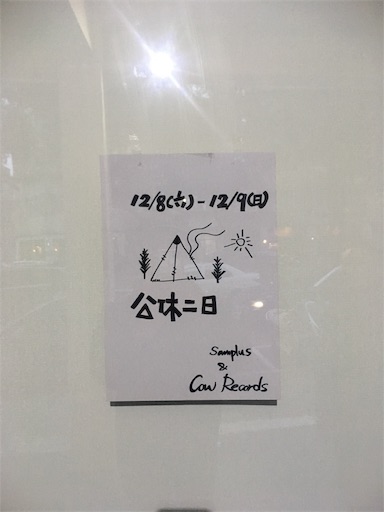 12/8(六)-12/9(日)
公休二日
Samplus
&
Cow Records